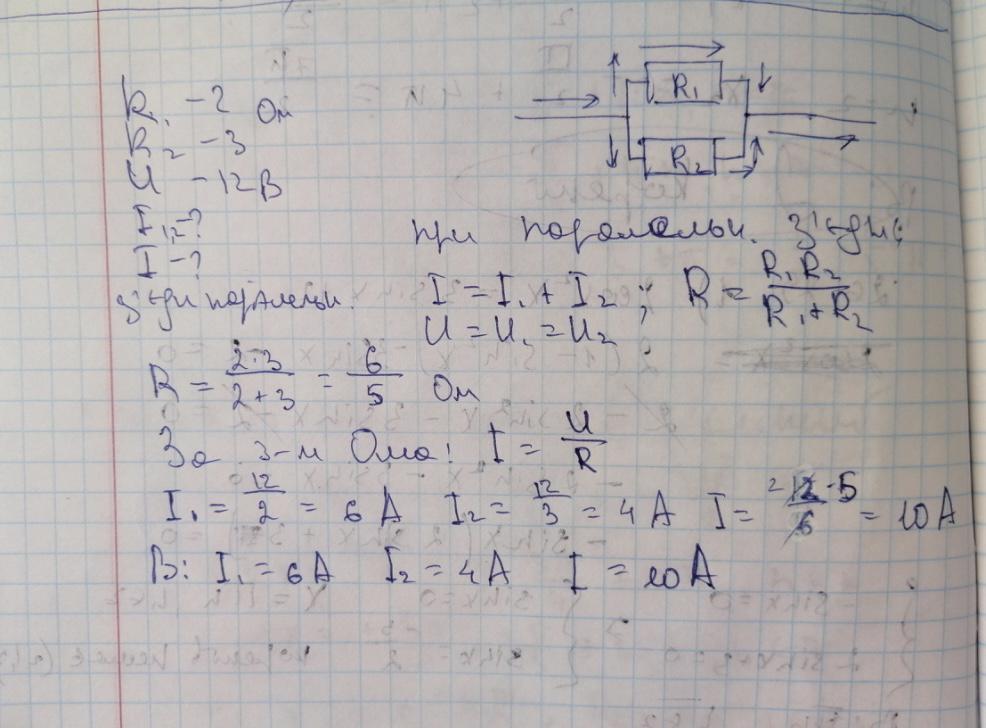 R₁ - 2 Ом
R₂ - 3
U - 12 В
I₁,₂ - ?
I - ?
з'єдн паралельн.
R₁
R₂
При паралельн. з'єдн:
I = I₁ + I₂ ; R = R₁R₂ / R₁+R₂
U = U₁ = U₂
R = 2·3 / 2+3 = 6/5 Ом
За з-м Ома: I = U/R
I₁ = 12/2 = 6 А I₂ = 12/3 = 4 А I = 12·5/6 = 10 А
В: I₁ = 6А I₂ = 4А I = 10А